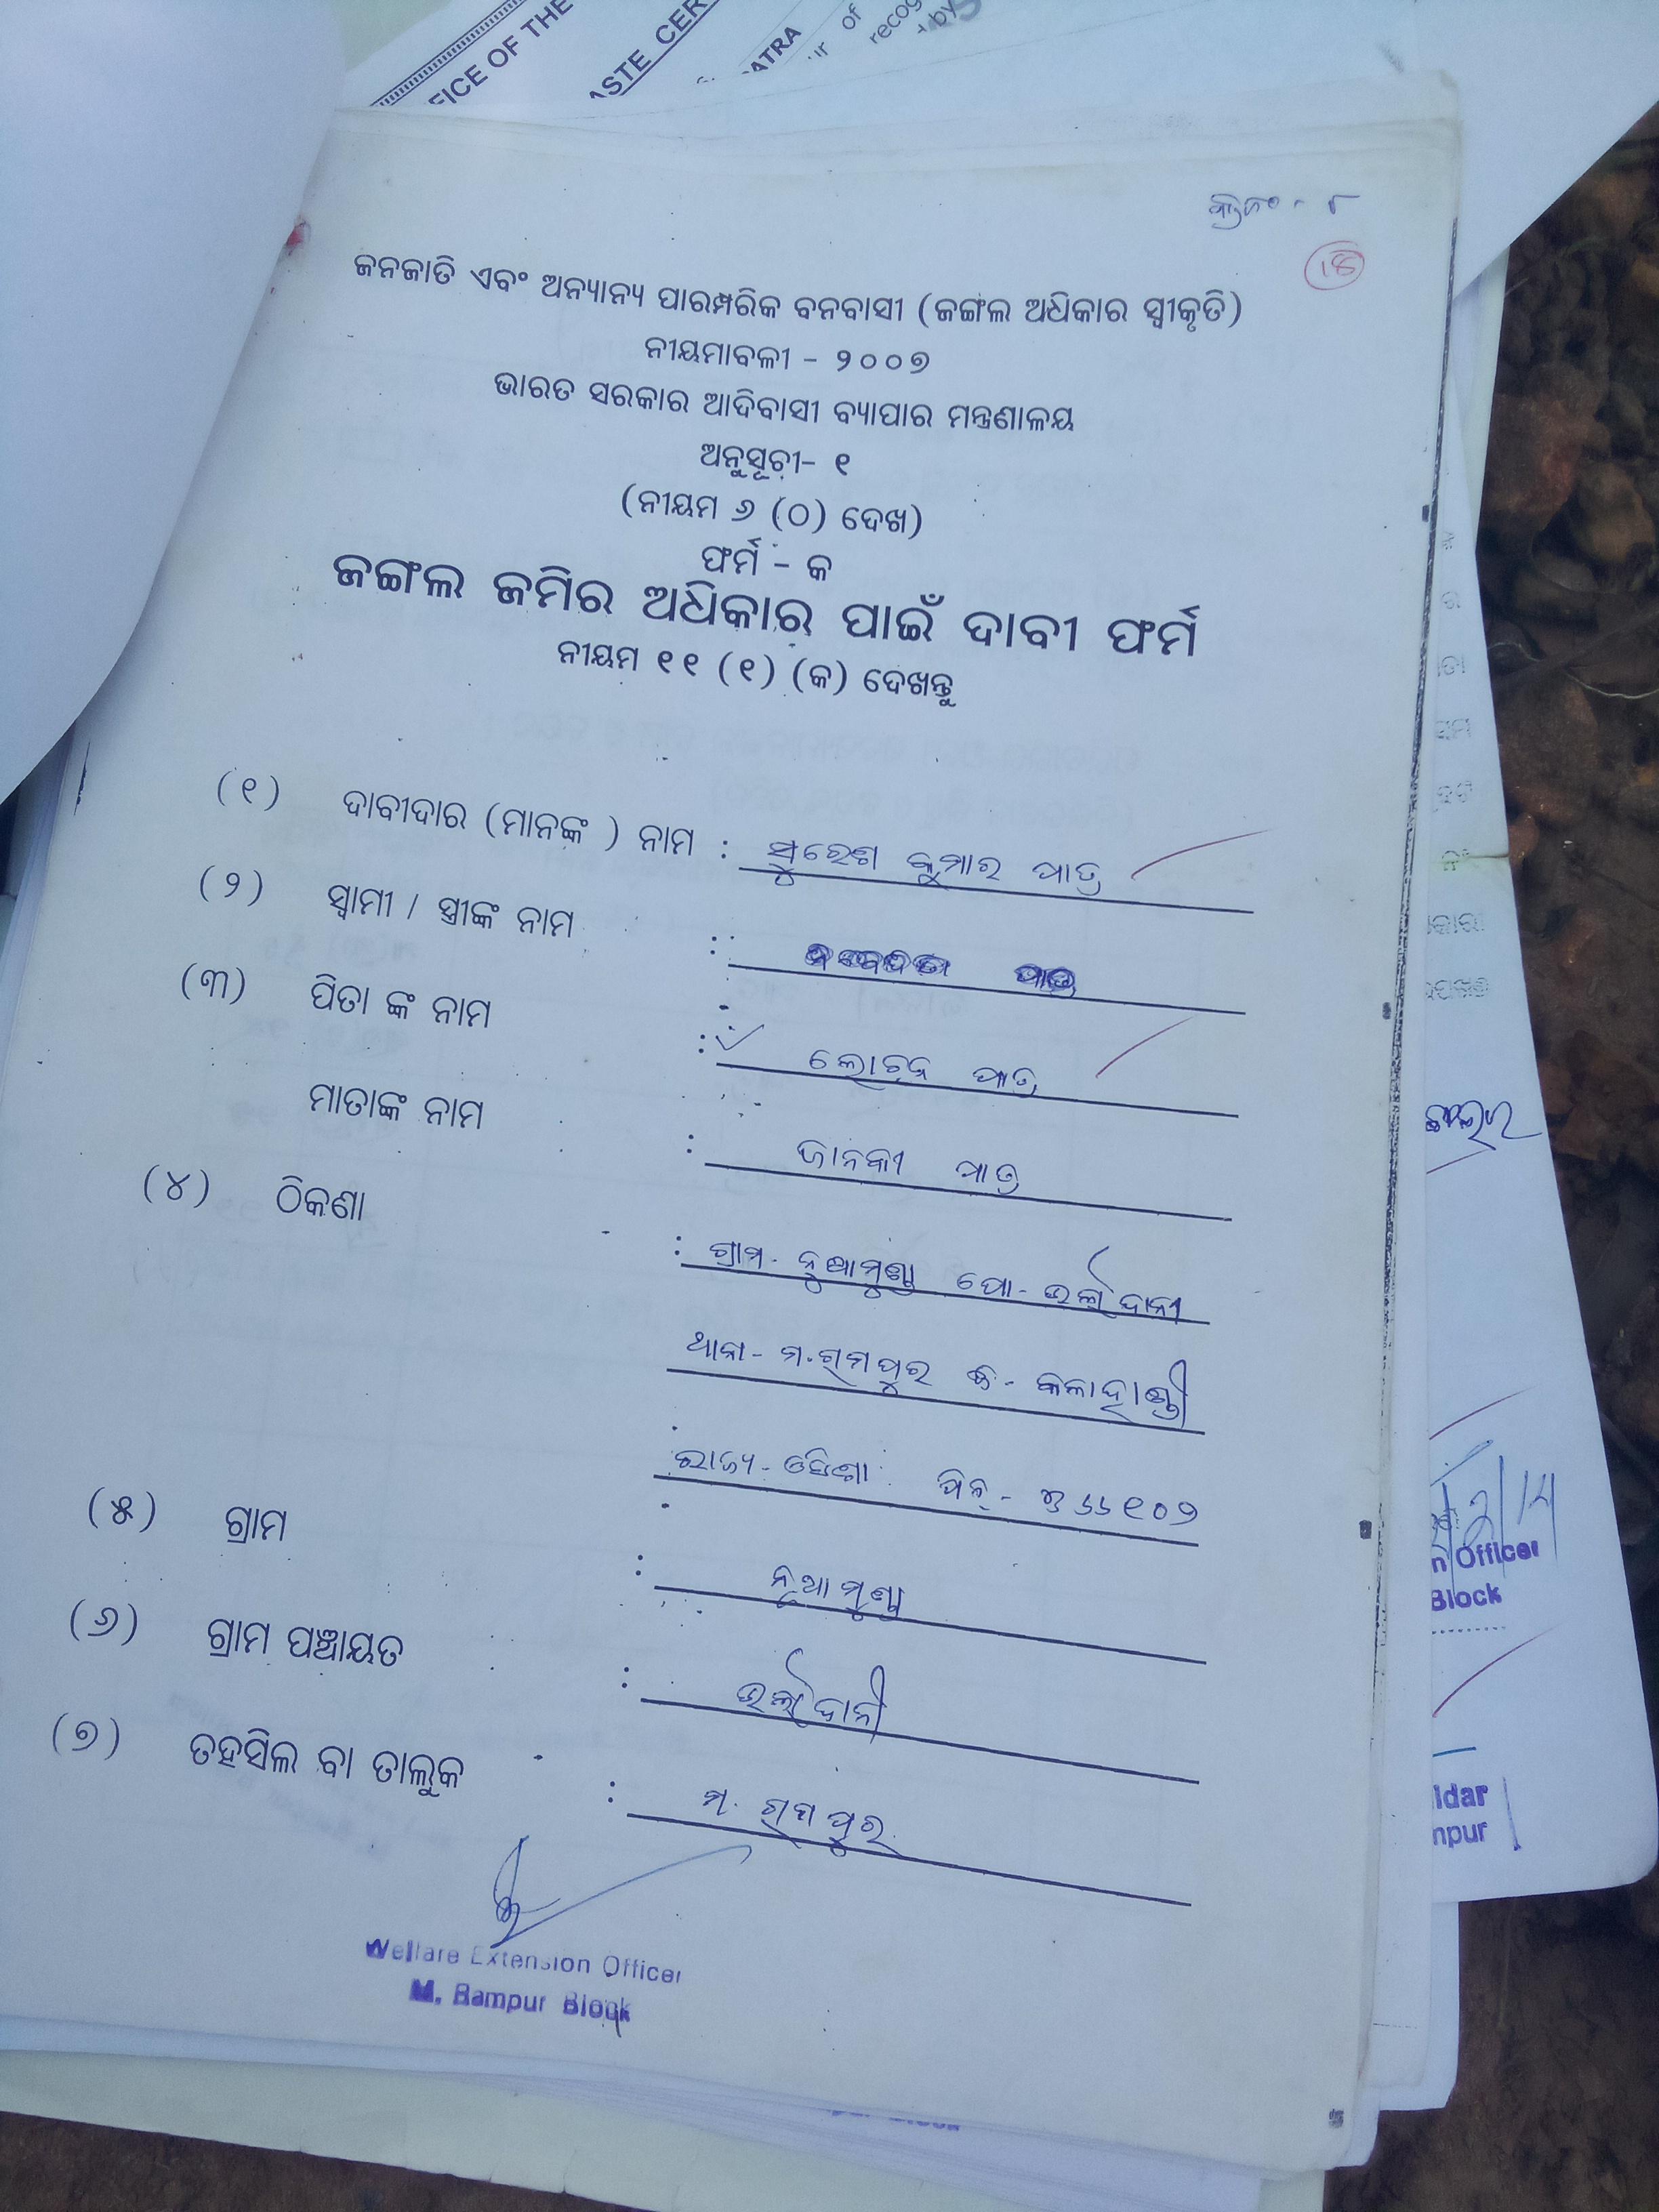 FICE OF THE
ASTE CER
ATRA
of
recog
by
କ୍ରମିକନଂ - ୮
ଜନଜାତି ଏବଂ ଅନ୍ୟାନ୍ୟ ପାରମ୍ପରିକ ବନବାସୀ (ଜଙ୍ଗଲ ଅଧିକାର ସ୍ୱୀକୃତି)
ନୀୟମାବଳୀ - ୨୦୦୭
ଭାରତ ସରକାର ଆଦିବାସୀ ବ୍ୟାପାର ମନ୍ତ୍ରଣାଳୟ
ଅନୁସୂଚୀ- ୧
(ନୀୟମ ୬ (୦) ଦେଖ)
ଫର୍ମ - କ
ଜଙ୍ଗଲ ଜମିର ଅଧିକାର ପାଇଁ ଦାବୀ ଫର୍ମ
ନୀୟମ ୧୧ (୧) (କ) ଦେଖନ୍ତୁ
(୧) ଦାବୀଦାର (ମାନଙ୍କ ) ନାମ : ସୁରେଶ କୁମାର ପାତ୍ର
(୨) ସ୍ୱାମୀ / ସ୍ତ୍ରୀଙ୍କ ନାମ : ପାତ୍ର
(୩) ପିତା ଙ୍କ ନାମ : ଲୋଚନ ପାତ୍ର
ମାତାଙ୍କ ନାମ : ଜାନକୀ ପାତ୍ର
(୪) ଠିକଣା : ଗ୍ରାମ- ନୁଆମୁଣ୍ଡା ପୋ- ଉର୍ଲାଦାନୀ
ଥାନା- ମ.ରାମପୁର ଜି- କଳାହାଣ୍ଡି
ରାଜ୍ୟ- ଓଡିଶା ପିନ୍ - ୭୬୬୧୦୨
(୫) ଗ୍ରାମ : ନୂଆମୁଣ୍ଡା
(୬) ଗ୍ରାମ ପଞ୍ଚାୟତ : ଉର୍ଲାଦାନୀ
(୭) ତହସିଲ ବା ତାଲୁକ : ମ. ରାମପୁର
Welfare Extension Officer
M. Rampur Block
n Officer
Block
ldar
npur